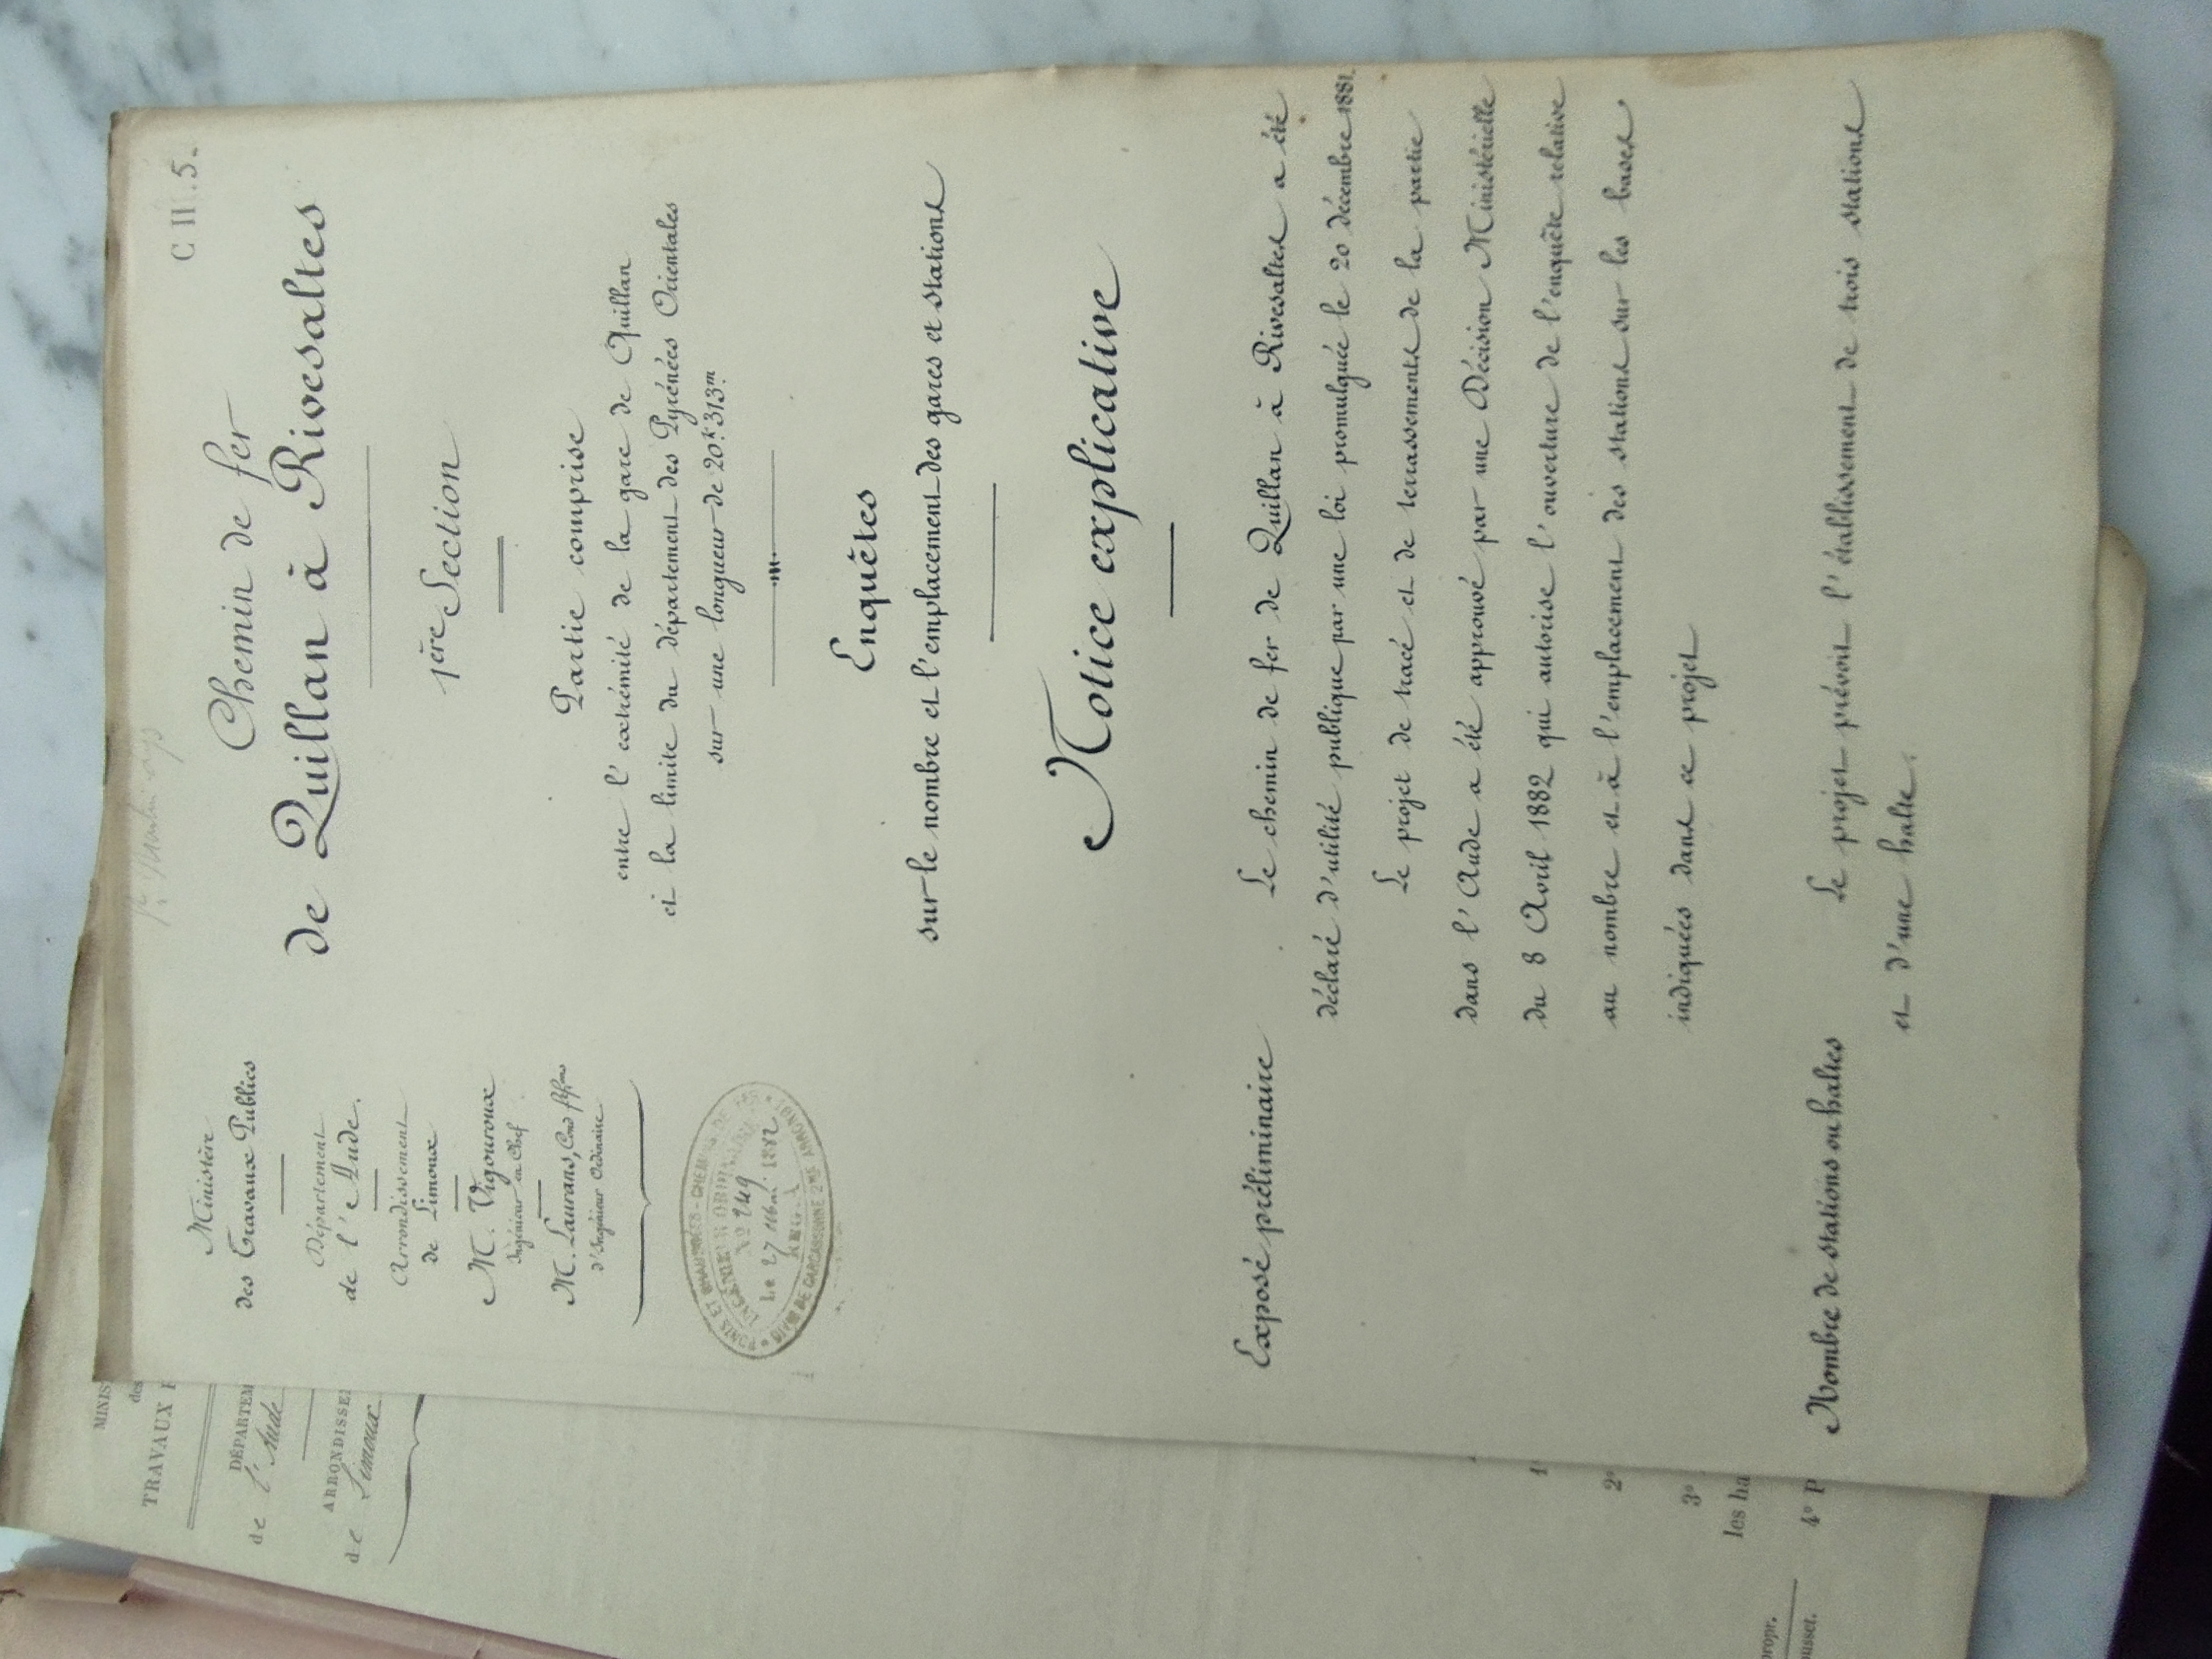 MINIS
des
TRAVAUX P
DÉPARTEM
de l'Aude
ARRONDISSE
de Limoux
1°
2°
3°
les ha
propr.
4° P
St Martin Lys
C II . 5.
Ministère
des Travaux Publics
Département
de l'Aude.
Arrondissement
de Limoux
M. Vigouroux
Ingénieur en Chef
M. Laurans, Cond. ff.ons
d'Ingénieur Ordinaire
PONTS ET CHAUSSÉES - CHEMINS DE FER
INGÉNIEUR ORDINAIRE
N° 249
Le 27 Mai 1882
REG. A
DE CARCASSONNE 2ME ARRONDT
Chemin de fer
de Quillan à Rivesaltes
1ère Section
Partie comprise
entre l'extrémité de la gare de Quillan
et la limite du département des Pyrénées Orientales
sur une longueur de 20k.313m.
Enquêtes
sur le nombre et l'emplacement des gares et stations
Notice explicative
Exposé préliminaire
Le chemin de fer de Quillan à Rivesaltes a été
déclaré d'utilité publique par une loi promulguée le 20 décembre 1881.
Le projet de tracé et de terrassements de la partie
dans l'Aude a été approuvé par une Décision Ministérielle
du 8 Avril 1882 qui autorise l'ouverture de l'enquête relative
au nombre et à l'emplacement des stations sur les bases
indiquées dans ce projet
Nombre de stations ou haltes
Le projet prévoit l'établissement de trois stations
et d'une halte.